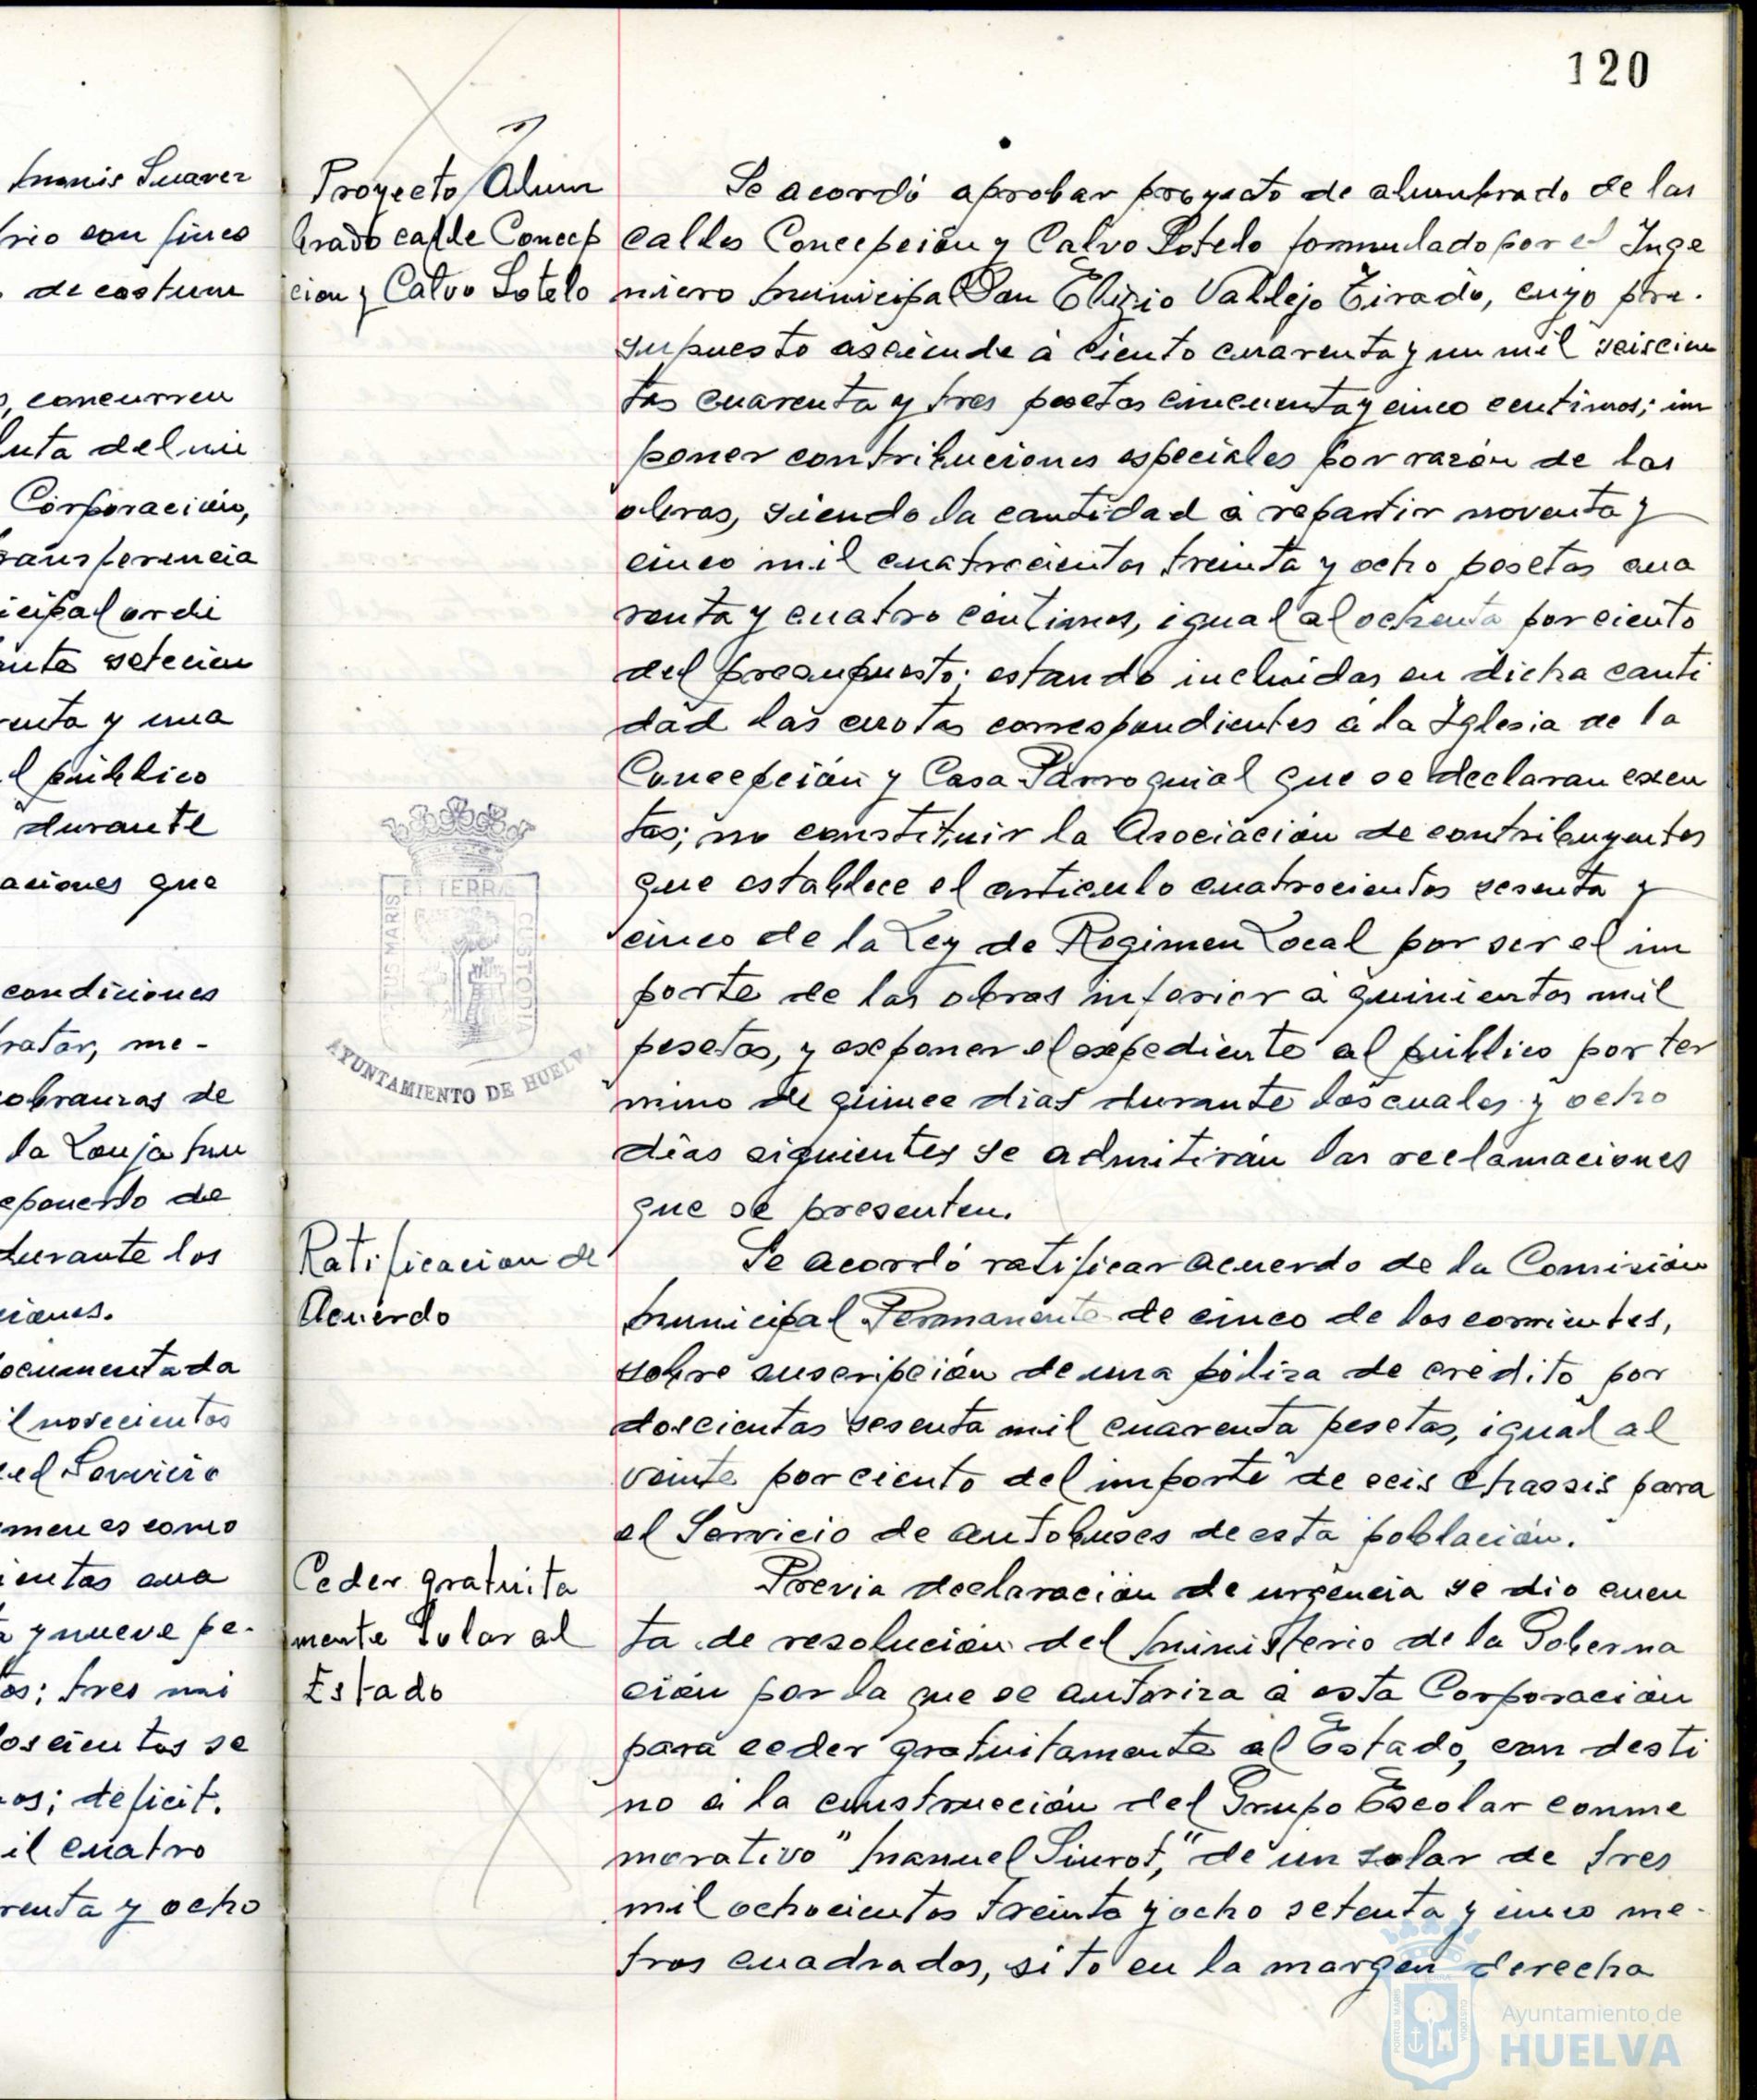 120
Suarez
rio con fines
de costum
concurren
luta del nu
Corporación,
ransferencia
icipal ordi
setecien
enta y una
l público
durante
aciones que
condiciones
ratar, me-
obranzas de
la Lonja mu
eponerlo de
durante los
ciones.
ocumentada
il novecientos
el Servicio
men es como
ientas cua
a y nueve pe-
os; tres mi
oscientos se
os; deficit,
il cuatro
renta y ocho
Proyecto Alum
brado calle Concep
cion y Calvo Sotelo
Se acordó aprobar proyecto de alumbrado de las
calles Concepción y Calvo Sotelo formulado por el Inge
niero municipal Don Eligio Vallejo Tirado, cuyo pre-
supuesto asciende á ciento cuarenta y un mil seiscien
tas cuarenta y tres pesetas cincuenta y cinco centimos; im
poner contribuciones especiales por razón de las
obras, siendo la cantidad á repartir noventa y
cinco mil cuatrocientas treinta y ocho pesetas cua
renta y cuatro centimos, igual al ochenta por ciento
del presupuesto; estando incluidas en dicha canti
dad las cuotas correspondientes á la Iglesia de la
Concepción y Casa Parroquial que se declaran exen
tas; no constituir la Asociación de contribuyentes
que establece el articulo cuatrocientos sesenta y
cinco de la Ley de Regimen Local por ser el im
porte de las obras inferior á quinientas mil
pesetas, y exponer el expediente al público por ter
mino de quince dias durante los cuales y ocho
dias siguientes se admitirán las reclamaciones
que se presenten.
Ratificacion de
Acuerdo
Se acordó ratificar acuerdo de la Comisión
municipal Permanente de cinco de los corrientes,
sobre suscripción de una póliza de crédito por
doscientas sesenta mil cuarenta pesetas, igual al
veinte por ciento del importe de seis Chassis para
el Servicio de autobuses de esta población.
Ceder gratuita
mente Solar al
Estado
Previa declaración de urgencia se dio cuen
ta de resolución del ministerio de la Goberna
ción por la que se autoriza á esta Corporación
para ceder gratuitamente al Estado, con desti
no á la construcción del Grupo Escolar conme
morativo "Manuel Siurot," de un solar de tres
mil ochocientos treinta y ocho setenta y cinco me-
tros cuadrados, sito en la margen derecha
ET TERRÆ
CUSTODIA
AYUNTAMIENTO DE HUELVA
Ayuntamiento de
HUELVA